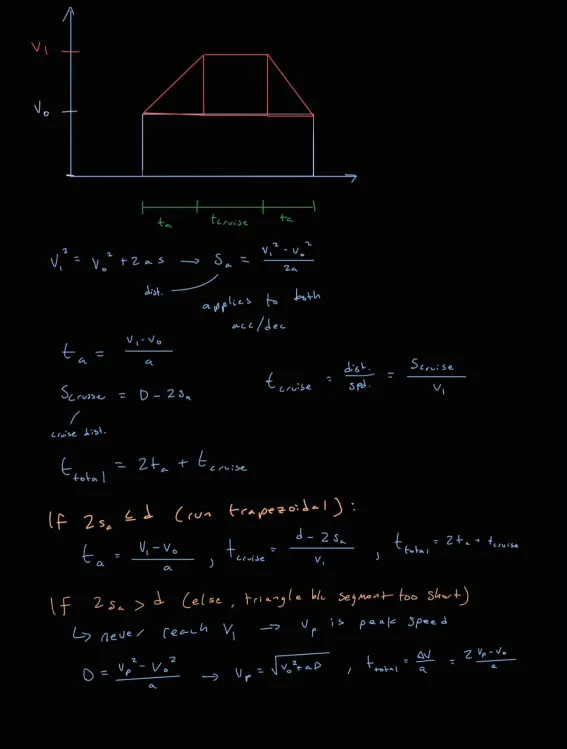 V₁
V₀
tₐ t_cruise tₐ
V₁² = V₀² + 2as → Sₐ = (V₁² - V₀²)/2a
dist.
applies to both
acc/dec
tₐ = (V₁-V₀)/a
t_cruise = dist./spd. = S_cruise/V₁
S_cruise = D - 2Sₐ
cruise dist.
t_total = 2tₐ + t_cruise
If 2Sₐ ≤ d (run trapezoidal):
tₐ = (V₁-V₀)/a, t_cruise = (d-2Sₐ)/V₁, t_total = 2tₐ + t_cruise
If 2Sₐ > d (else, triangle b/c segment too short)
↳ never reach V₁ → Vₚ is peak speed
D = (Vₚ² - V₀²)/a → Vₚ = √(V₀²+aD), t_total = ΔV/a = 2 (Vₚ-V₀)/a